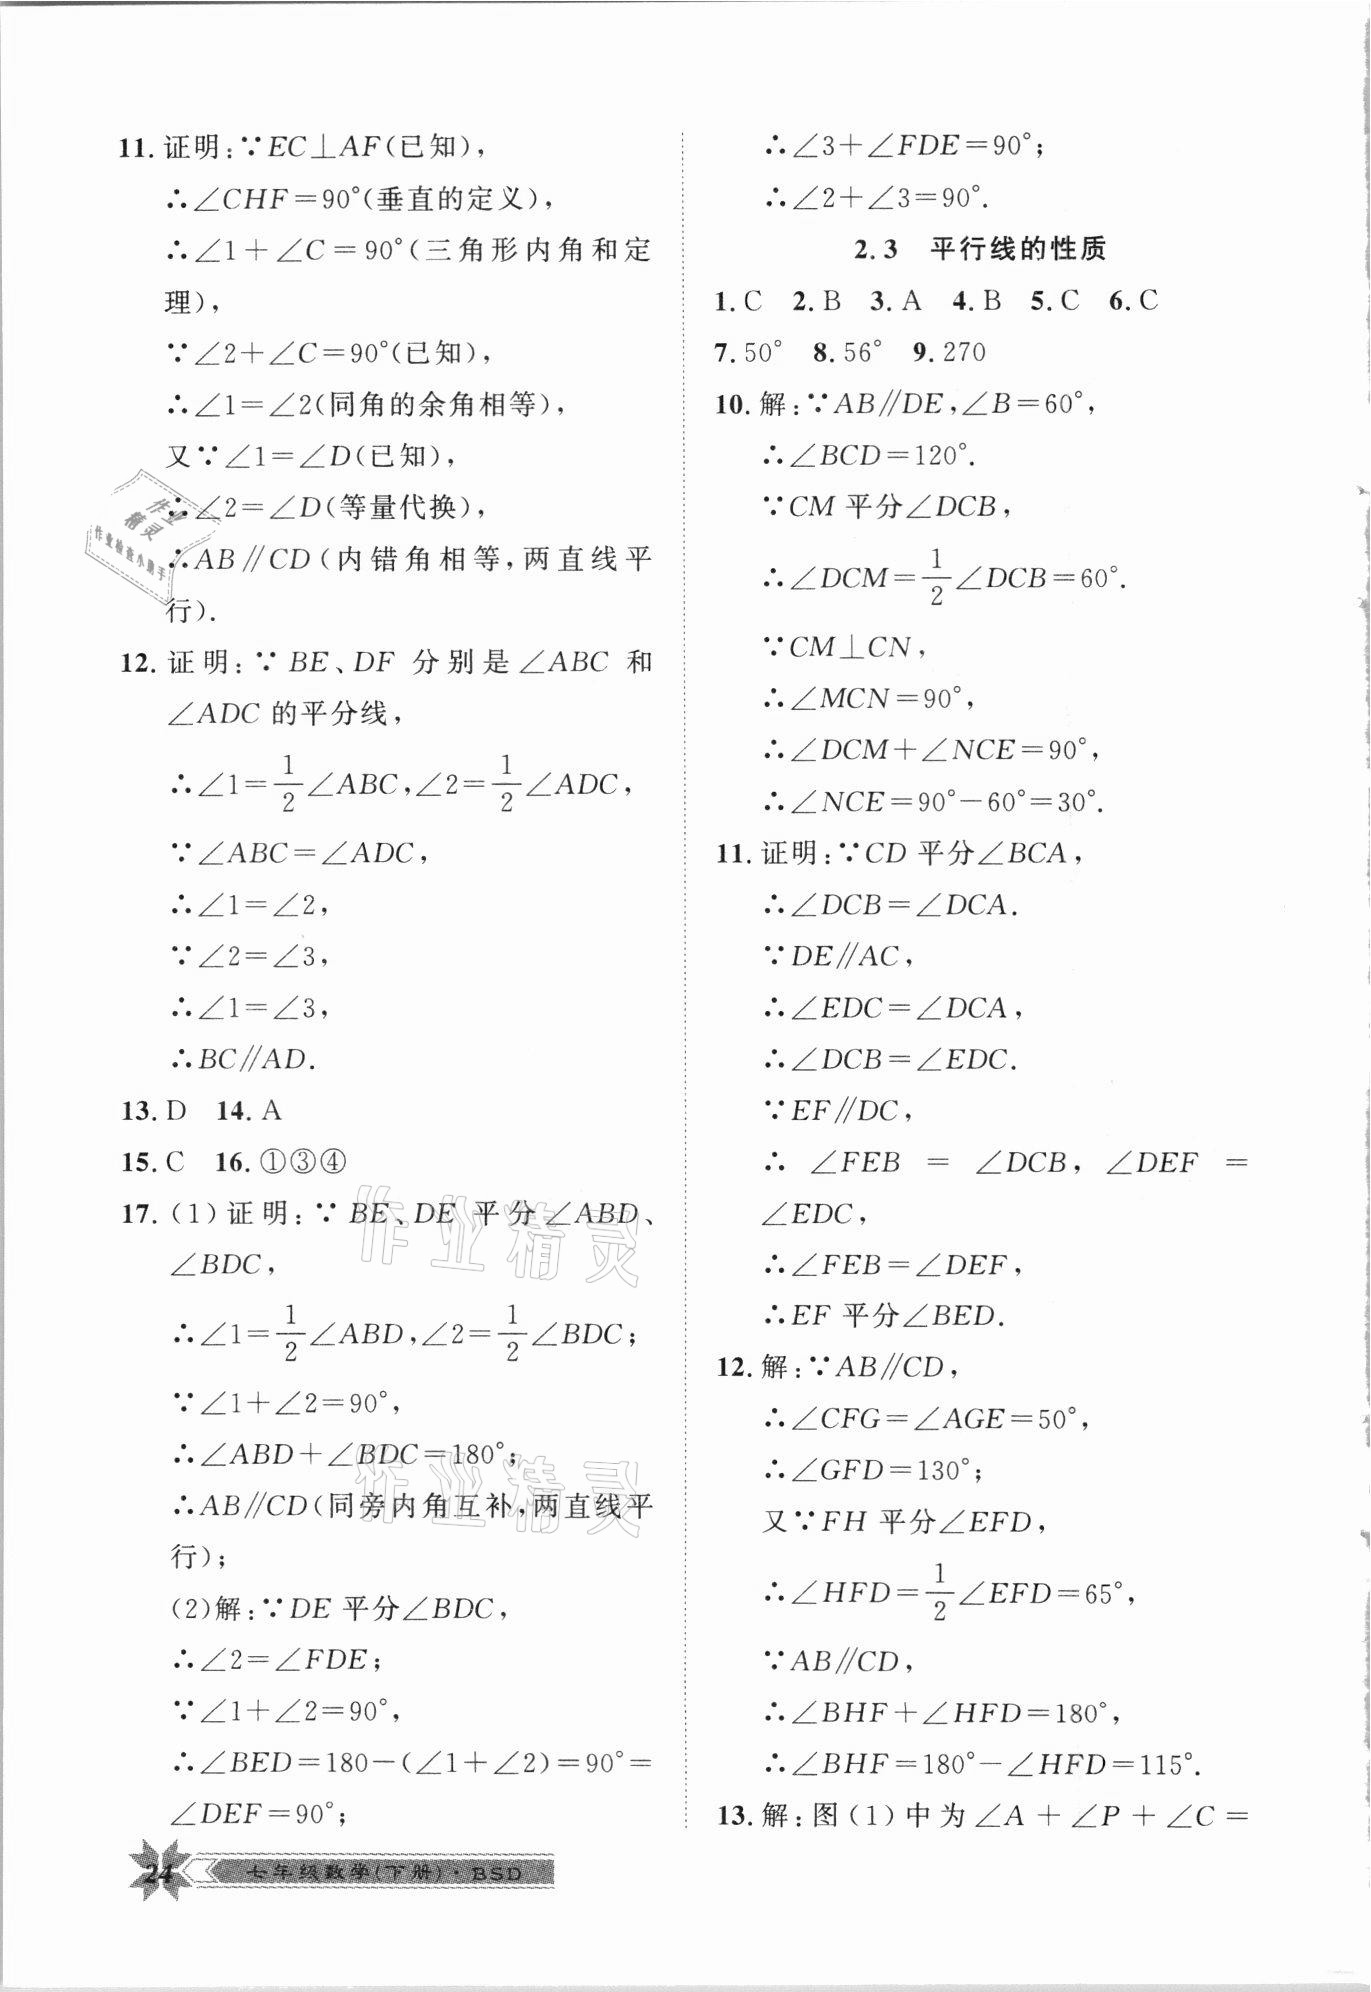 11. 证明:∵EC⊥AF(已知),
∴∠CHF=90°(垂直的定义),
∴∠1+∠C=90°(三角形内角和定
理),
∵∠2+∠C=90°(已知),
∴∠1=∠2(同角的余角相等),
又∵∠1=∠D(已知),
∴∠2=∠D(等量代换),
∴AB∥CD(内错角相等,两直线平
行).
12. 证明:∵BE、DF 分别是∠ABC 和
∠ADC 的平分线,
∴∠1=1/2∠ABC,∠2=1/2∠ADC,
∵∠ABC=∠ADC,
∴∠1=∠2,
∵∠2=∠3,
∴∠1=∠3,
∴BC∥AD.
13. D 14. A
15. C 16. ①③④
17. (1)证明:∵BE、DE 平分∠ABD、
∠BDC,
∴∠1=1/2∠ABD,∠2=1/2∠BDC;
∵∠1+∠2=90°,
∴∠ABD+∠BDC=180°;
∴AB∥CD(同旁内角互补,两直线平
行);
(2)解:∵DE 平分∠BDC,
∴∠2=∠FDE;
∵∠1+∠2=90°,
∴∠BED=180-(∠1+∠2)=90°=
∠DEF=90°;
∴∠3+∠FDE=90°;
∴∠2+∠3=90°.
2.3 平行线的性质
1. C 2. B 3. A 4. B 5. C 6. C
7. 50° 8. 56° 9. 270
10. 解:∵AB∥DE,∠B=60°,
∴∠BCD=120°.
∵CM 平分∠DCB,
∴∠DCM=1/2∠DCB=60°.
∵CM⊥CN,
∴∠MCN=90°,
∴∠DCM+∠NCE=90°,
∴∠NCE=90°-60°=30°.
11. 证明:∵CD 平分∠BCA,
∴∠DCB=∠DCA.
∵DE∥AC,
∴∠EDC=∠DCA,
∴∠DCB=∠EDC.
∵EF∥DC,
∴ ∠FEB = ∠DCB, ∠DEF =
∠EDC,
∴∠FEB=∠DEF,
∴EF 平分∠BED.
12. 解:∵AB∥CD,
∴∠CFG=∠AGE=50°,
∴∠GFD=130°;
又∵FH 平分∠EFD,
∴∠HFD=1/2∠EFD=65°,
∵AB∥CD,
∴∠BHF+∠HFD=180°,
∴∠BHF=180°-∠HFD=115°.
13. 解:图(1)中为∠A+∠P+∠C=
24 七年级数学(下册)·BSD
作业
精灵
作业检查小助手
作业精灵
作业精灵